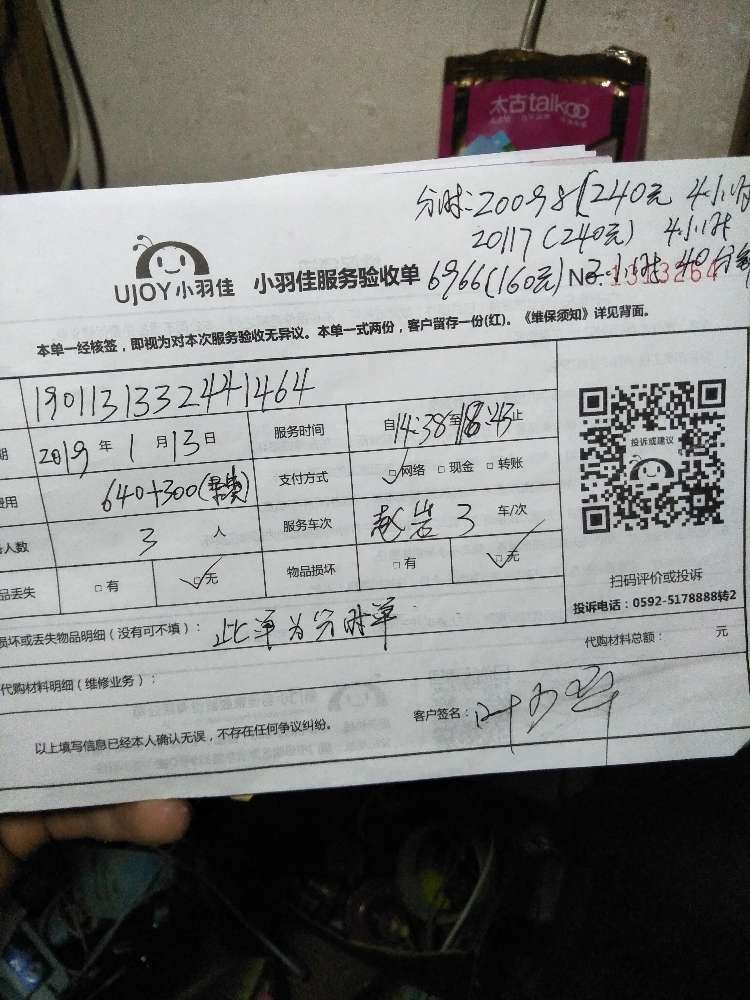 太古taikoo
分时:20098(240元 4小时
20117(240元) 4小时
6966(160元) 2小时40分钟
UJOY小羽佳 小羽佳服务验收单 No.1313264
本单一经核签，即视为对本次服务验收无异议。本单一式两份，客户留存一份(红)。《维保须知》详见背面。
1901131332441464
期 2019 年 1 月 13 日 服务时间 自14:38至18:43止
费用 640+300() 支付方式 □网络 □现金 □转账
人数 3 人 服务车次 3 车/次
品丢失 □有 □无 物品损坏 □有 □无
投诉或建议
扫码评价或投诉
投诉电话：0592-5178888转2
损坏或丢失物品明细（没有可不填）： 此单为分时单
代购材料总额： 元
代购材料明细（维修业务）：
客户签名：叶
以上填写信息已经本人确认无误，不存在任何争议纠纷。